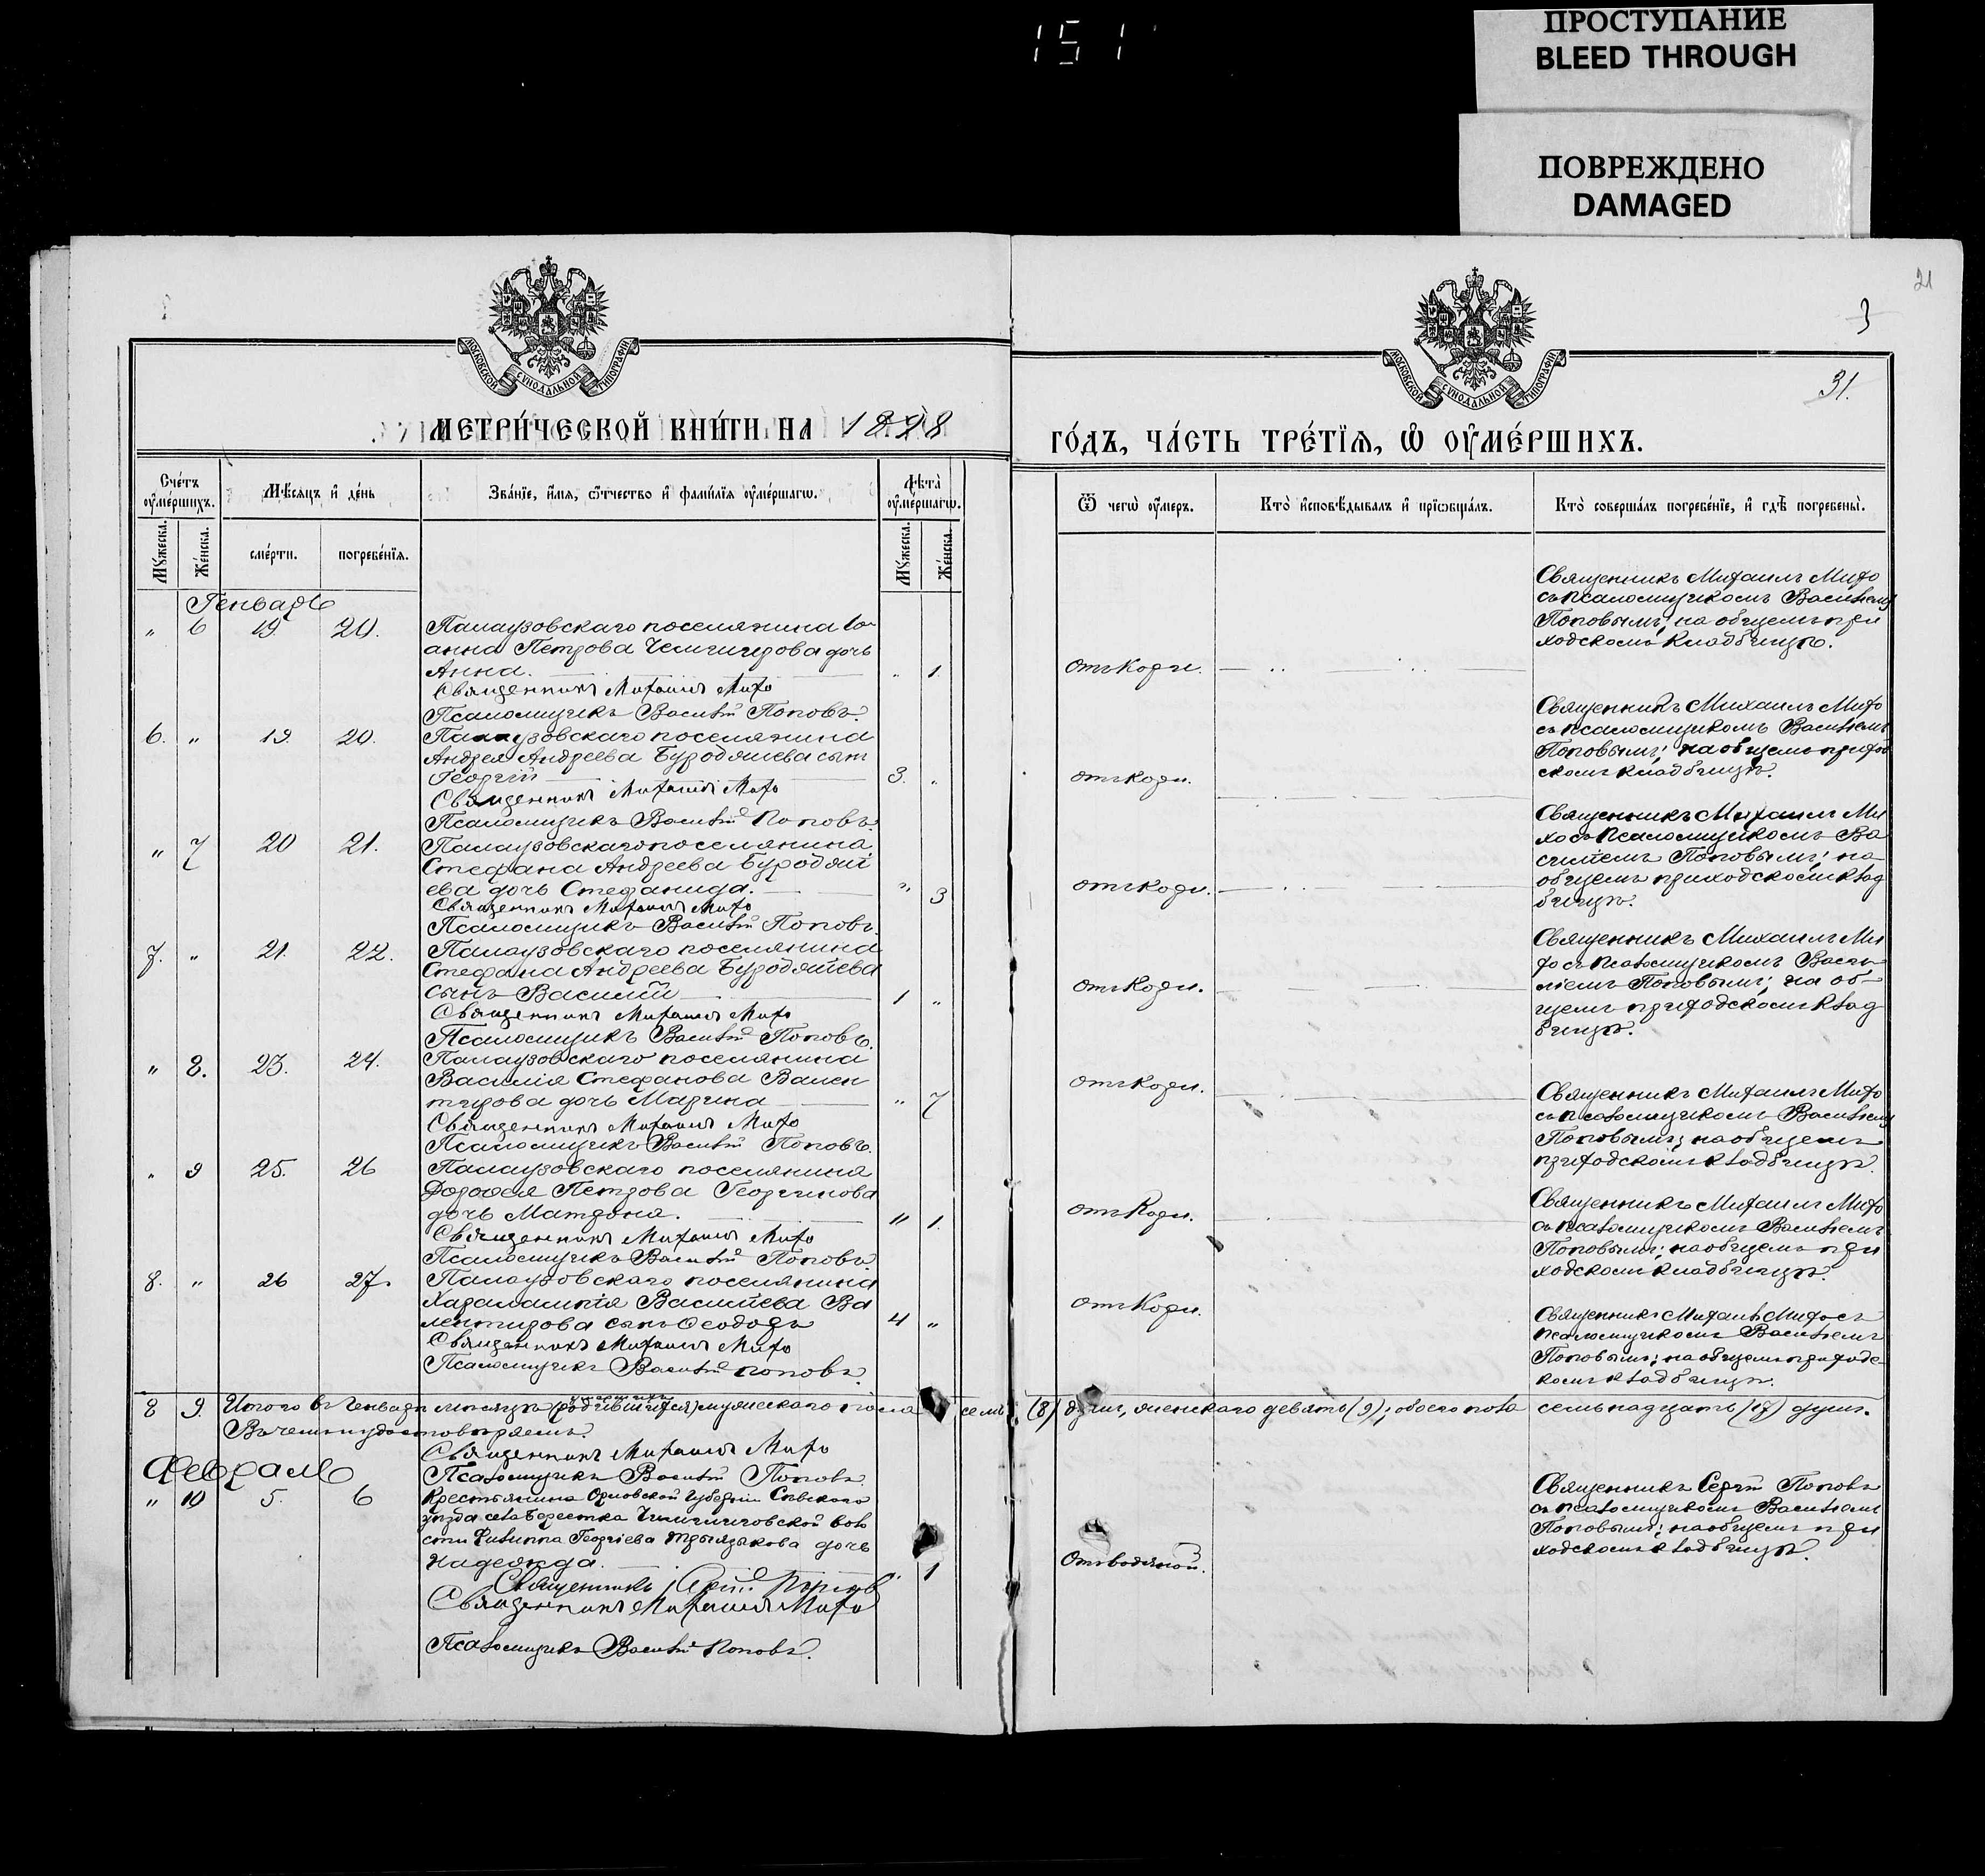 151
ПРОСТУПАНИЕ
BLEED THROUGH
ПОВРЕЖДЕНО
DAMAGED
21
3
31.
МОСКОВСКОЙ СѴНОДАЛЬНОЙ ТИПОГРАФІИ
МОСКОВСКОЙ СѴНОДАЛЬНОЙ ТИПОГРАФІИ
МЕТРИ́ЧЕСКОЙ КНИ́ГИ НА 1898
ГО́ДЪ, ЧА́СТЬ ТРЕ́ТЇѦ, Ѽ ОУ҆МЕ́РШИХЪ.
Сче́тъ оу҆ме́ршихъ.
Мѣ́сѧцъ и҆ де́нь
Зва́нїе, и҆́мѧ, ѻ҆́тчество и҆ фами́лїѧ оу҆ме́ршагѡ.
Лѣта̀ оу҆ме́ршагѡ.
Мꙋ́жеска.
Же́нска.
сме́рти.
погребе́нїѧ.
Мꙋ́жеска.
Же́нска.
Ѿ чегѡ̀ оу҆́меръ.
Кто̀ и҆сповѣ́дывалъ и҆ прїѡбща́лъ.
Кто̀ соверша́лъ погребе́нїе, и҆ гдѣ̀ погребены̀.
Генварь
" 6 19. 20. Палаузовскаго поселянина Іо-
анна Петрова дочь
Анна. " 1.
Священникъ Михаилъ Михо
Псаломщикъ Василій Поповъ.
отъ кори.
Священникъ Михаилъ Михо
съ псаломщикомъ Василіемъ
Поповымъ; на общемъ при
ходскомъ кладбищѣ.
6. " 19. 20. Палаузовскаго поселянина
Андрея Андреева Буродяиева сынъ
Георгій 3. "
Священникъ Михаилъ Михо
Псаломщикъ Василій Поповъ.
отъ кори.
Священникъ Михаилъ Михо
съ псаломщикомъ Василіемъ
Поповымъ; на общемъ приход
скомъ кладбищѣ.
" 7 20 21. Палаузовскаго поселянина
Стефана Андреева Буродяи
ева дочь Стефанида. " 3
Священникъ Михаилъ Михо
Псаломщикъ Василій Поповъ.
отъ кори.
Священникъ Михаилъ Ми
хо съ псаломщикомъ Ва
силіемъ Поповымъ; на
общемъ приходскомъ клад
бищѣ.
7. " 21. 22. Палаузовскаго поселянина
Стефана Андреева Буродяиева
сынъ Василій 1 "
Священникъ Михаилъ Михо
Псаломщикъ Василій Поповъ.
отъ кори.
Священникъ Михаилъ Ми
хо съ псаломщикомъ Васи-
ліемъ Поповымъ; на об-
щемъ приходскомъ клад
бищѣ.
" 8. 23. 24. Палаузовскаго поселянина
Василія Стефанова Вален
тирова дочь Марина " 7
Священникъ Михаилъ Михо
Псаломщикъ Василій Поповъ.
отъ кори.
Священникъ Михаилъ Михо
съ псаломщикомъ Василіемъ
Поповымъ; на общемъ
приходскомъ кладбищѣ.
" 9 25. 26 Палаузовскаго поселянина
Дороѳея Петрова Георгинова
дочь Матрона. " 1.
Священникъ Михаилъ Михо
Псаломщикъ Василій Поповъ.
отъ кори.
Священникъ Михаилъ Михо
съ псаломщикомъ Василіемъ
Поповымъ; на общемъ при
ходскомъ кладбищѣ.
8. " 26 27. Палаузовскаго поселянина
Харалампія Василіева Ва
лентирова сынъ Ѳеодоръ 4 "
Священникъ Михаилъ Михо
Псаломщикъ Василій Поповъ.
отъ кори.
Священникъ Михаилъ Михо съ
псаломщикомъ Василіемъ
Поповымъ; на общемъ приходс-
комъ кладбищѣ.
8 9. Итого въ Генварѣ мѣсяцѣ (родившихся) умершихъ мужескаго пола семь (8) душъ, женскаго девять (9); обоего пола семьнадцать (17) душъ.
Въ чемъ и удостовѣряемъ.
Священникъ Михаилъ Михо
Псаломщикъ Василій Поповъ.
Февраль
" 10 5. 6 Крестьянина Орловской губерніи Сѣвскаго
уѣзда села Берестка воло
сти Филиппа Георгіева дочь
Надежда. " 1
Священникъ Сергій Поповъ
Священникъ Михаилъ Михо
Псаломщикъ Василій Поповъ.
Отъ водяной.
Священникъ Сергій Поповъ
съ псаломщикомъ Василіемъ
Поповымъ; на общемъ при
ходскомъ кладбищѣ.